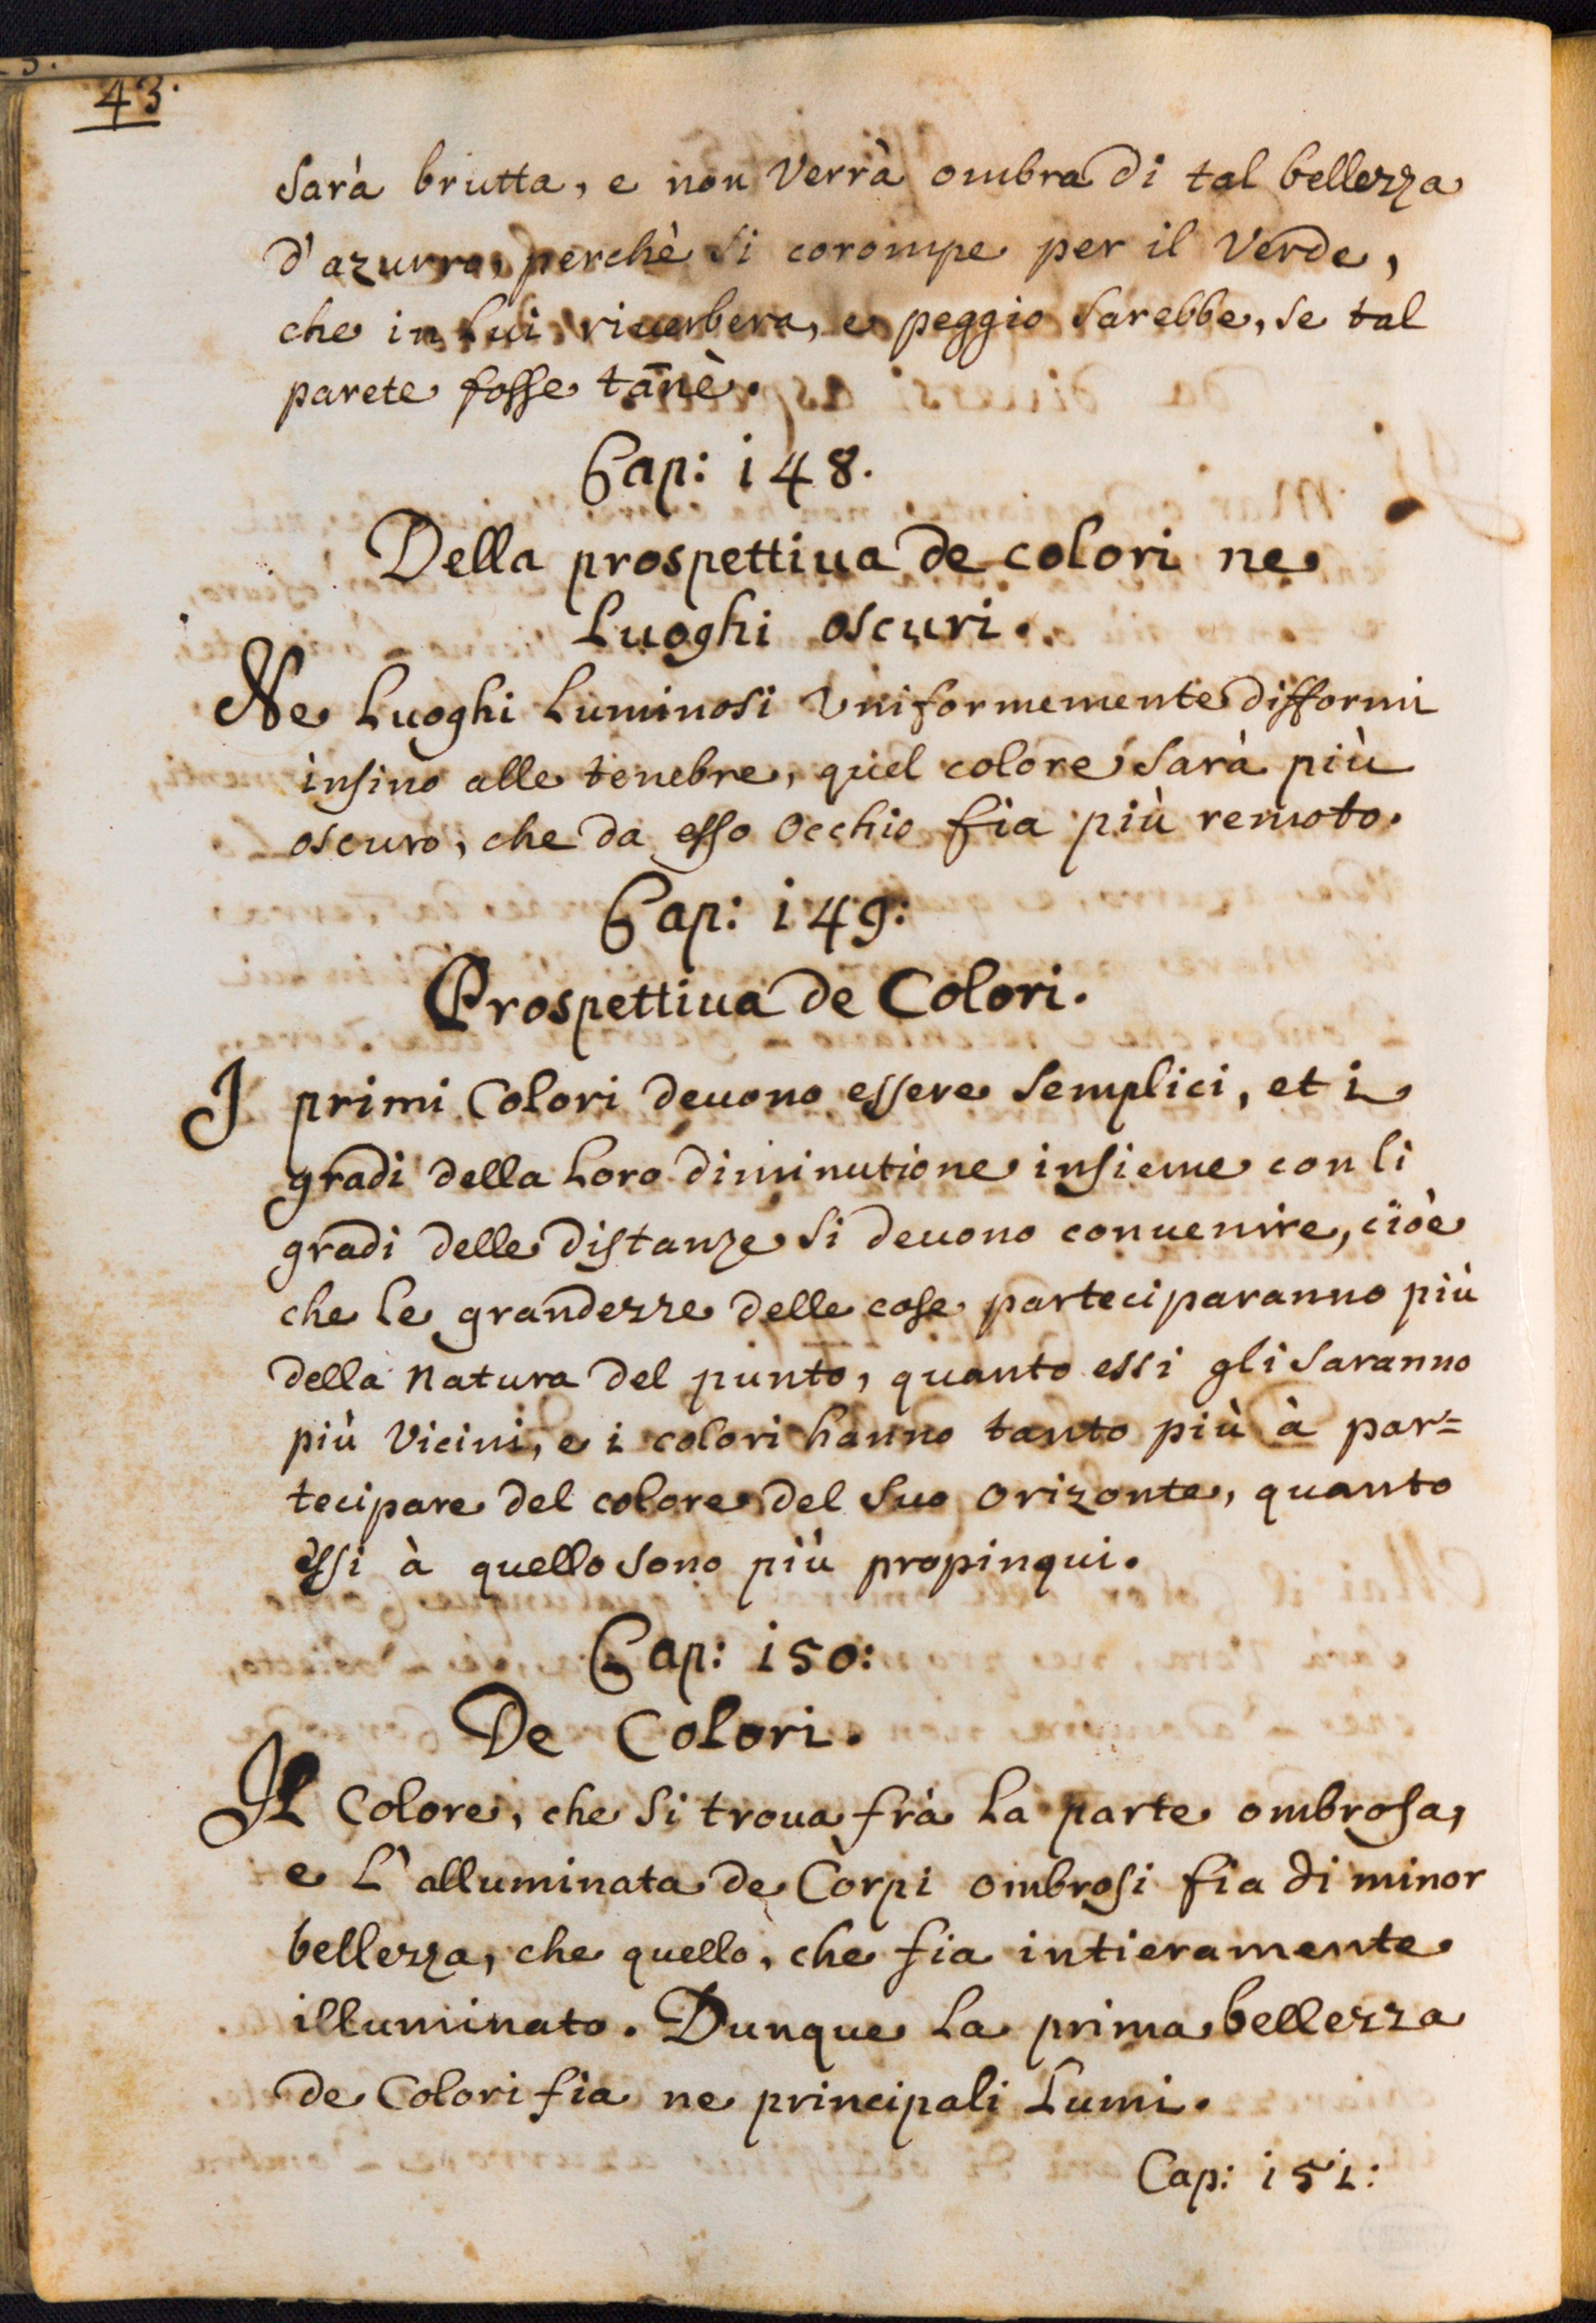 43.
Sarà brutta, e non Verrà ombra di tal bellezza
d'azurro, perchè si corompe per il Verde,
che in Lui riuerbera, e peggio Sarebbe, se tal
parete fosse tān̄è.
Cap: 148.
Della prospettiua de colori ne
Luoghi oscuri.
Ne Luoghi Luminosi Vniformemente difformi
insino alle tenebre, quel colore Sarà più
oscuro, che da esso Occhio fia più remoto.
Cap: 149:
Prospettiua de Colori.
I primi Colori deuono essere Semplici, et i
gradi della Loro diminutione insieme con li
gradi delle distanze si deuono conuenire, cioè
che le grandezze delle cose parteciparanno più
della Natura del punto, quanto essi gli Saranno
più Vicini, e i colori hanno tanto più à par=
tecipare del colore del Suo Orizonte, quanto
essi à quello sono più propinqui.
Cap: 150:
De Colori.
Il Colore, che si troua frà la parte ombrosa,
e L'alluminata de Corpi ombrosi fia di minor
bellezza, che quello, che fia intieramente
illuminato. Dunque La prima bellezza
de Colori fia ne principali Lumi.
Cap: 151: